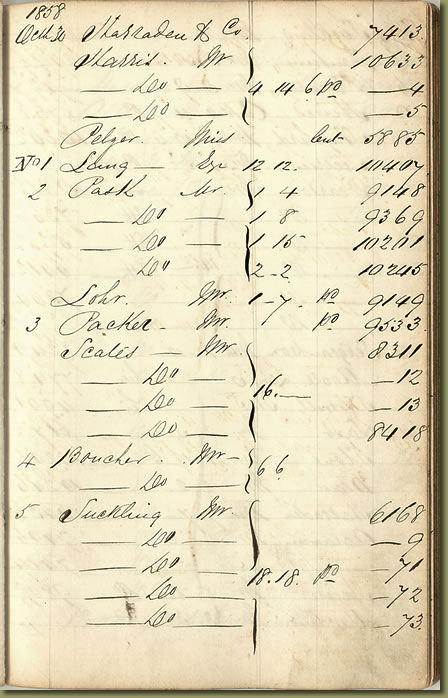 1858
Octr 30 Harraden & Co. 7413
Harris. Mr. 10633
— Do — 4 14 6 pd —4
— Do — —5
Pelzer. Miss lent 5885
No 1 Lang — Esq 12 12. 10407
2 Pask Mr. 1 4 9148
— Do — 1 8 9369
— Do — 1 15 10201
Do 2-2. 10245
Lohr. Mr. 1-7. pd 9149
3 Packer - Mr. pd 9533
Scates — Mr 8311
— Do — —12
— Do — 16.— —13
— Do — 8418
4 Boucher. Mr —
— Do — 6 6
5 Suckling Mr. 6168
— Do — —9
— Do — 18.18. pd —71
— Do — —72
— Do — —73